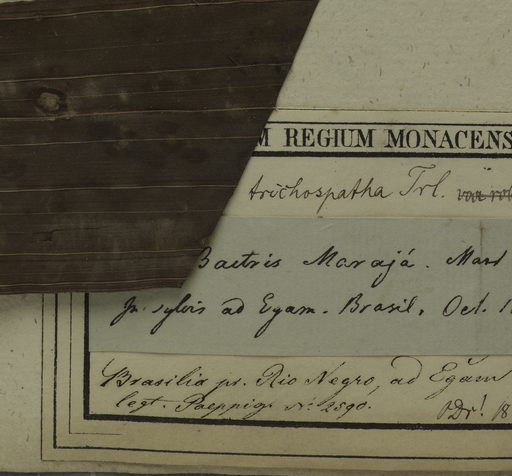 M REGIUM MONACENS
trichospatha Trl.
Bactris Marajá. Mart
In sylvis ad Egam. Brasil. Oct. 1
Brasilia pr. Rio Negro, ad Egam
legt. Poeppig. N. 2590. 18